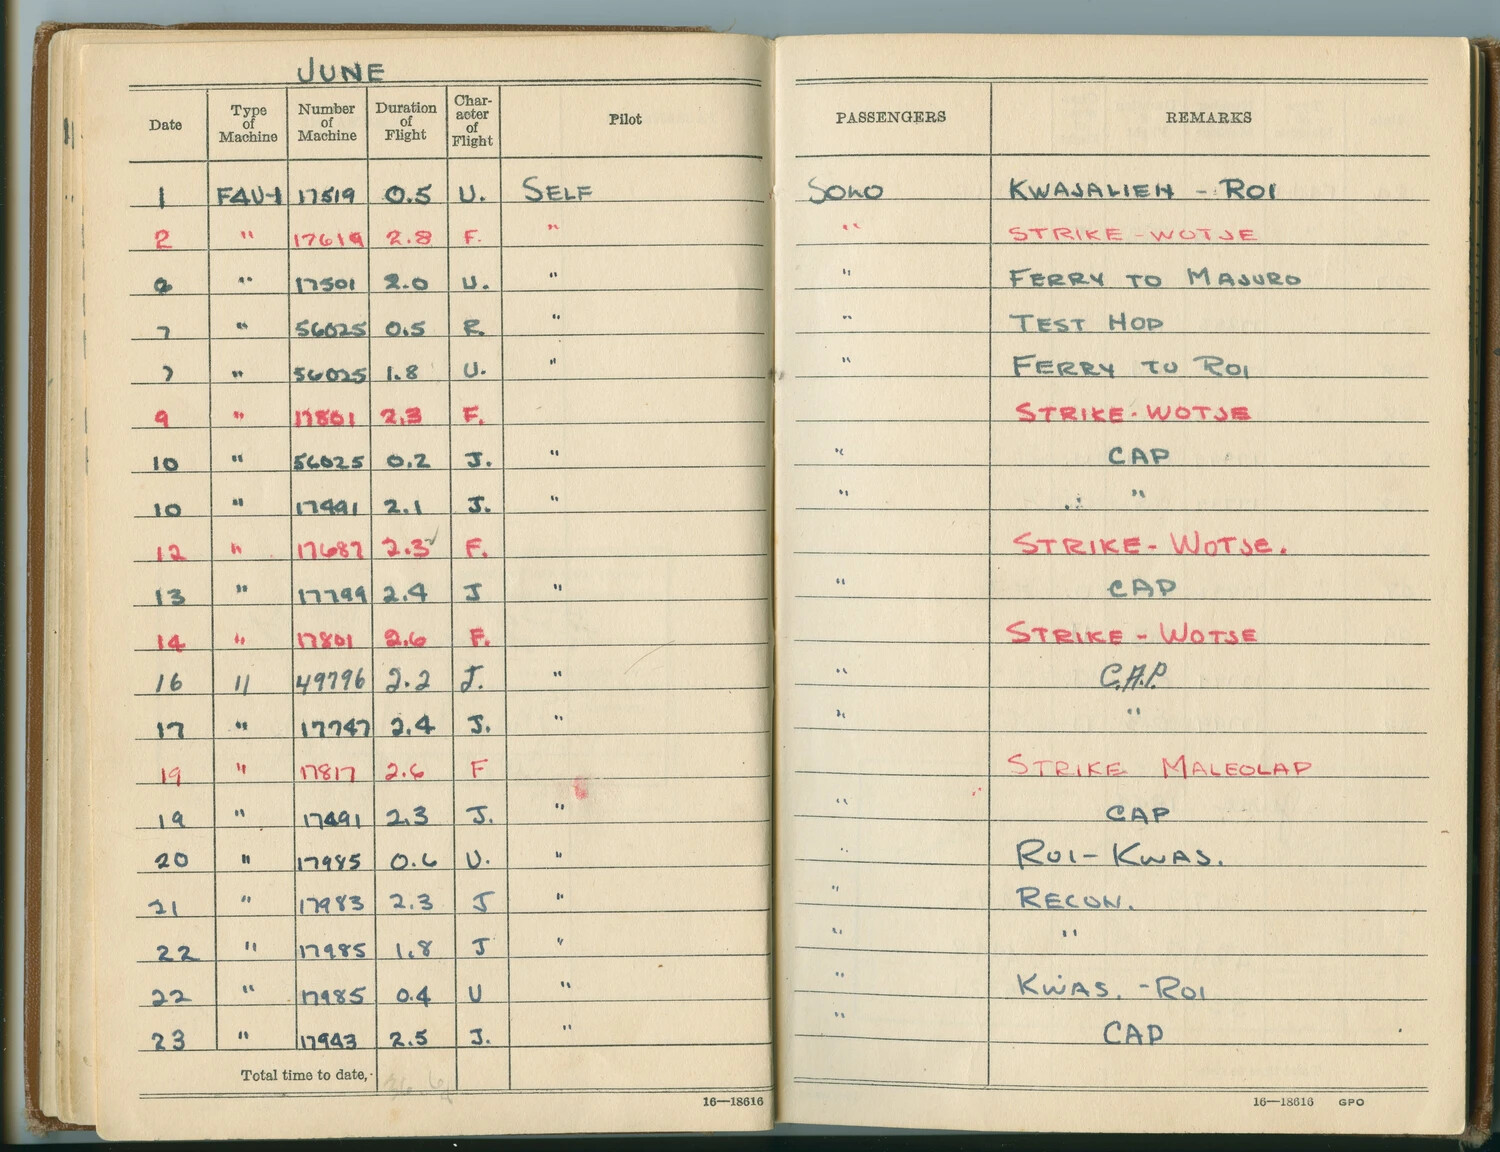 JUNE
Date Type of Machine Number of Machine Duration of Flight Char-acter of Flight Pilot PASSENGERS REMARKS
1 F4U-1 17519 0.5 U. SELF SOLO KWAJALIEN - ROI
2 " 17619 2.8 F. " " STRIKE - WOTJE
" 17501 2.0 U. " " FERRY TO MAJURO
7 " 56025 0.5 R. " " TEST HOP
7 " 56025 1.8 U. " " FERRY TO ROI
9 " 17801 2.3 F. STRIKE - WOTJE
10 " 56025 0.2 J. " " CAP
10 " 17491 2.1 J. " " "
12 " 17687 2.3 F. STRIKE - WOTJE.
13 " 17799 2.4 J " " CAP
14 " 17801 2.6 F. STRIKE - WOTJE
16 " 49796 2.2 J. " " C.A.P.
17 " 17747 2.4 J. " " "
19 " 17817 2.6 F STRIKE MALEOLAP
19 " 17491 2.3 J. " " CAP
20 " 17985 0.6 U. " " ROI - KWAS.
21 " 17983 2.3 J " " RECON.
22 " 17985 1.8 J " " "
22 " 17985 0.4 U " " KWAS. - ROI
23 " 17943 2.5 J. " " CAP
Total time to date,
16—18616 16—18616 GPO